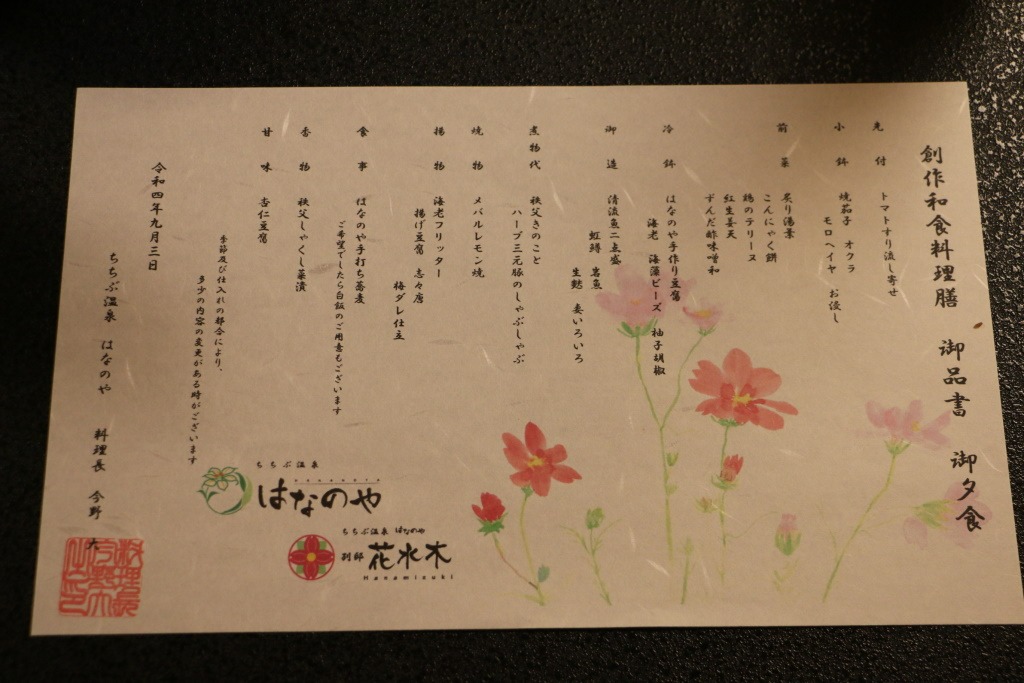 創作和食料理膳 御品書 御夕食
先付 トマトすり流し寄せ
小鉢 焼茄子 オクラ
モロヘイヤ お浸し
前菜 炙り湯葉
こんにゃく餅
鶏のテリーヌ
紅生姜天
ずんだ酢味噌和
冷鉢 はなのや手作り豆腐
海老 海藻ビーズ 柚子胡椒
御造 清流魚二点盛
虹鱒 岩魚
生麩 妻いろいろ
煮物代 秩父きのこと
ハーブ三元豚のしゃぶしゃぶ
焼物 メバルレモン焼
揚物 海老フリッター
揚げ豆腐 志々唐
梅ダレ仕立
食事 はなのや手打ち蕎麦
ご希望でしたら白飯のご用意もございます
香物 秩父しゃくし菜漬
甘味 杏仁豆腐
季節及び仕入れの都合により、
多少の内容の変更がある時がございます
令和四年九月三日
ちちぶ温泉 はなのや 料理長 今野 大
ちちぶ温泉
はなのや
ちちぶ温泉 はなのや
別邸 花水木
Hanamizuki